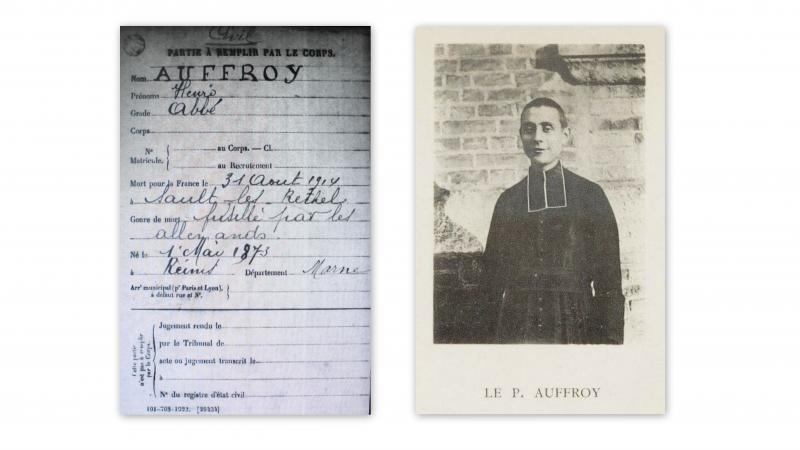 Civil
PARTIE À REMPLIR PAR LE CORPS.
Nom AUFFROY
Prénoms Henri
Grade Abbé
Corps
N° au Corps. — Cl.
Matricule. au Recrutement
Mort pour la France le 31 Août 1914
à Sault-les-Rethel
Genre de mort fusillé par les
allemands
Né le 1er Mai 1873
à Reims Département Marne
Arrt municipal (pr Paris et Lyon),
à défaut rue et N°.
Cette partie
n'est pas à remplir
par le Corps.
Jugement rendu le
par le Tribunal de
acte ou jugement transcrit le
à
N° du registre d'état civil
101-708-1922. [26434]
LE P. AUFFROY